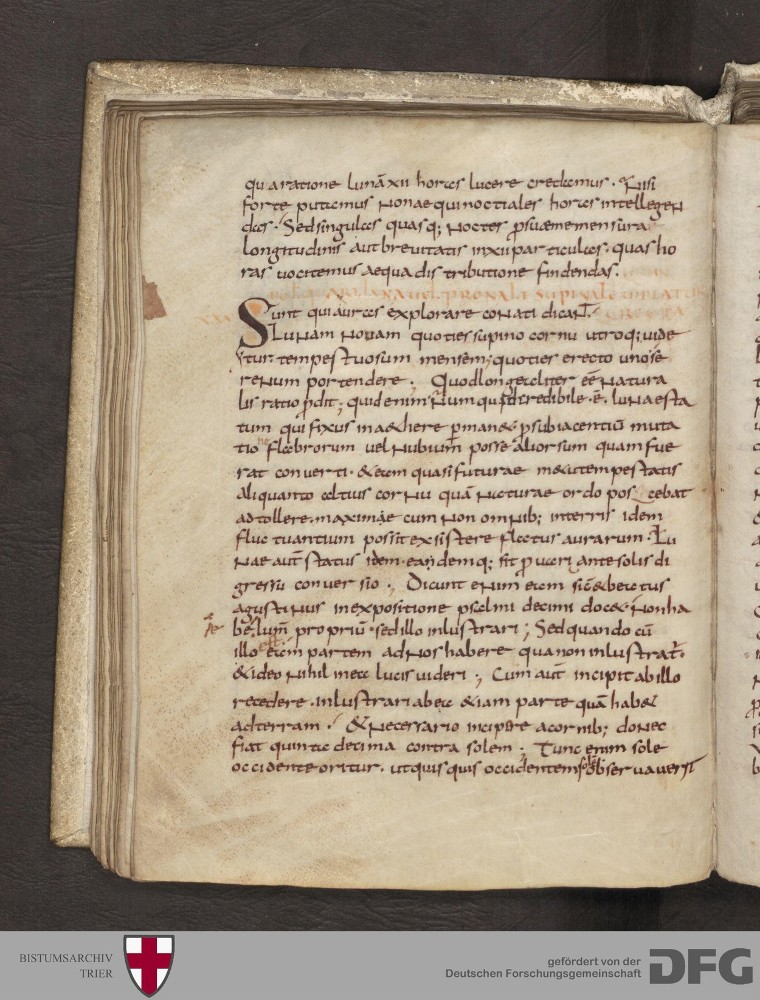 qua ratione lunā xii horas lucere credimus. Nisi
forte putemus Nonae quinoctiales horas intellegeN
das. Sed singulas quasq; Noctes p suae mensura
longitudinis aut brevitatis in xii particulas. quas ho
ras vocitemus aequa distributione findendas.
Sunt qui auras explorare coNati dicaNt.
LuNam Novam quoties supino cornu utroq; vide
tur. tempestuosum mensem; quoties erecto uno se
reNum portendere. Quod longe aliter eē Natura
lis ratio pdit; quid enim Numquid credibile .ē. luNae sta
tum qui fixus in aethere pmanet p subiacentiū muta
tio he flabrorum vel Nubium posse aliorsum quam fue
rat converti. & eam quasi futurae metu tempestatis
aliquanto altius corNu quā Naturae ordo poscebat
adtollere. maximae cum Non omNib; in terris idem
fluctuantium possit existere flatus aurarum. Lu
Nae aut status idem. eandemq; sit p varia ante solis di
gressu conversio. DicuNt eNim eam sic & beatus
agustiNus in expositione psalmi decimi docet. Non ha
bere lumn propriū. sed illo inlustrari; Sed quando cū
illo est eam partem ad Nos habere qua non inlustrat.
& ideo Nihil in ea lucis videri; Cum aut incipit ab illo
recedere. inlustrari ab ea etiam parte quā habet
ad terram. & Necessario incipere a corNib; doNec
fiat quinta decima contra solem; Tunc enim sole
occidente oritur. ut quisquis occidentem sole observaverit
BISTUMSARCHIV
TRIER
gefördert von der
Deutschen Forschungsgemeinschaft
DFG